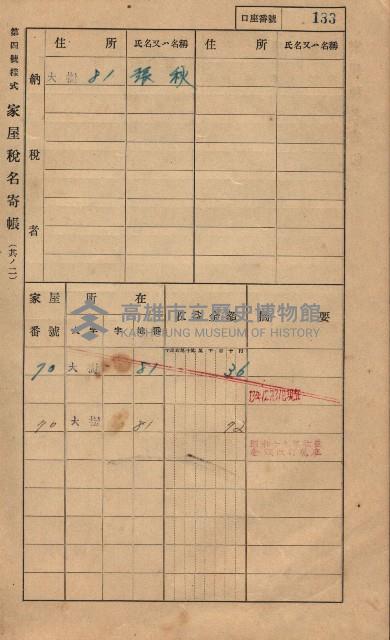 口座番號 133
第四號樣式 家屋稅名寄帳 (其ノ二)
住所 氏名又ハ名稱 住所 氏名又ハ名稱
納稅者
大樹 81 張秋
家屋番號 所在 大字 字 地番 摘要
高雄市立歷史博物館
KAOHSIUNG MUSEUM OF HISTORY
70 大樹 81 36
70 大樹 81 72